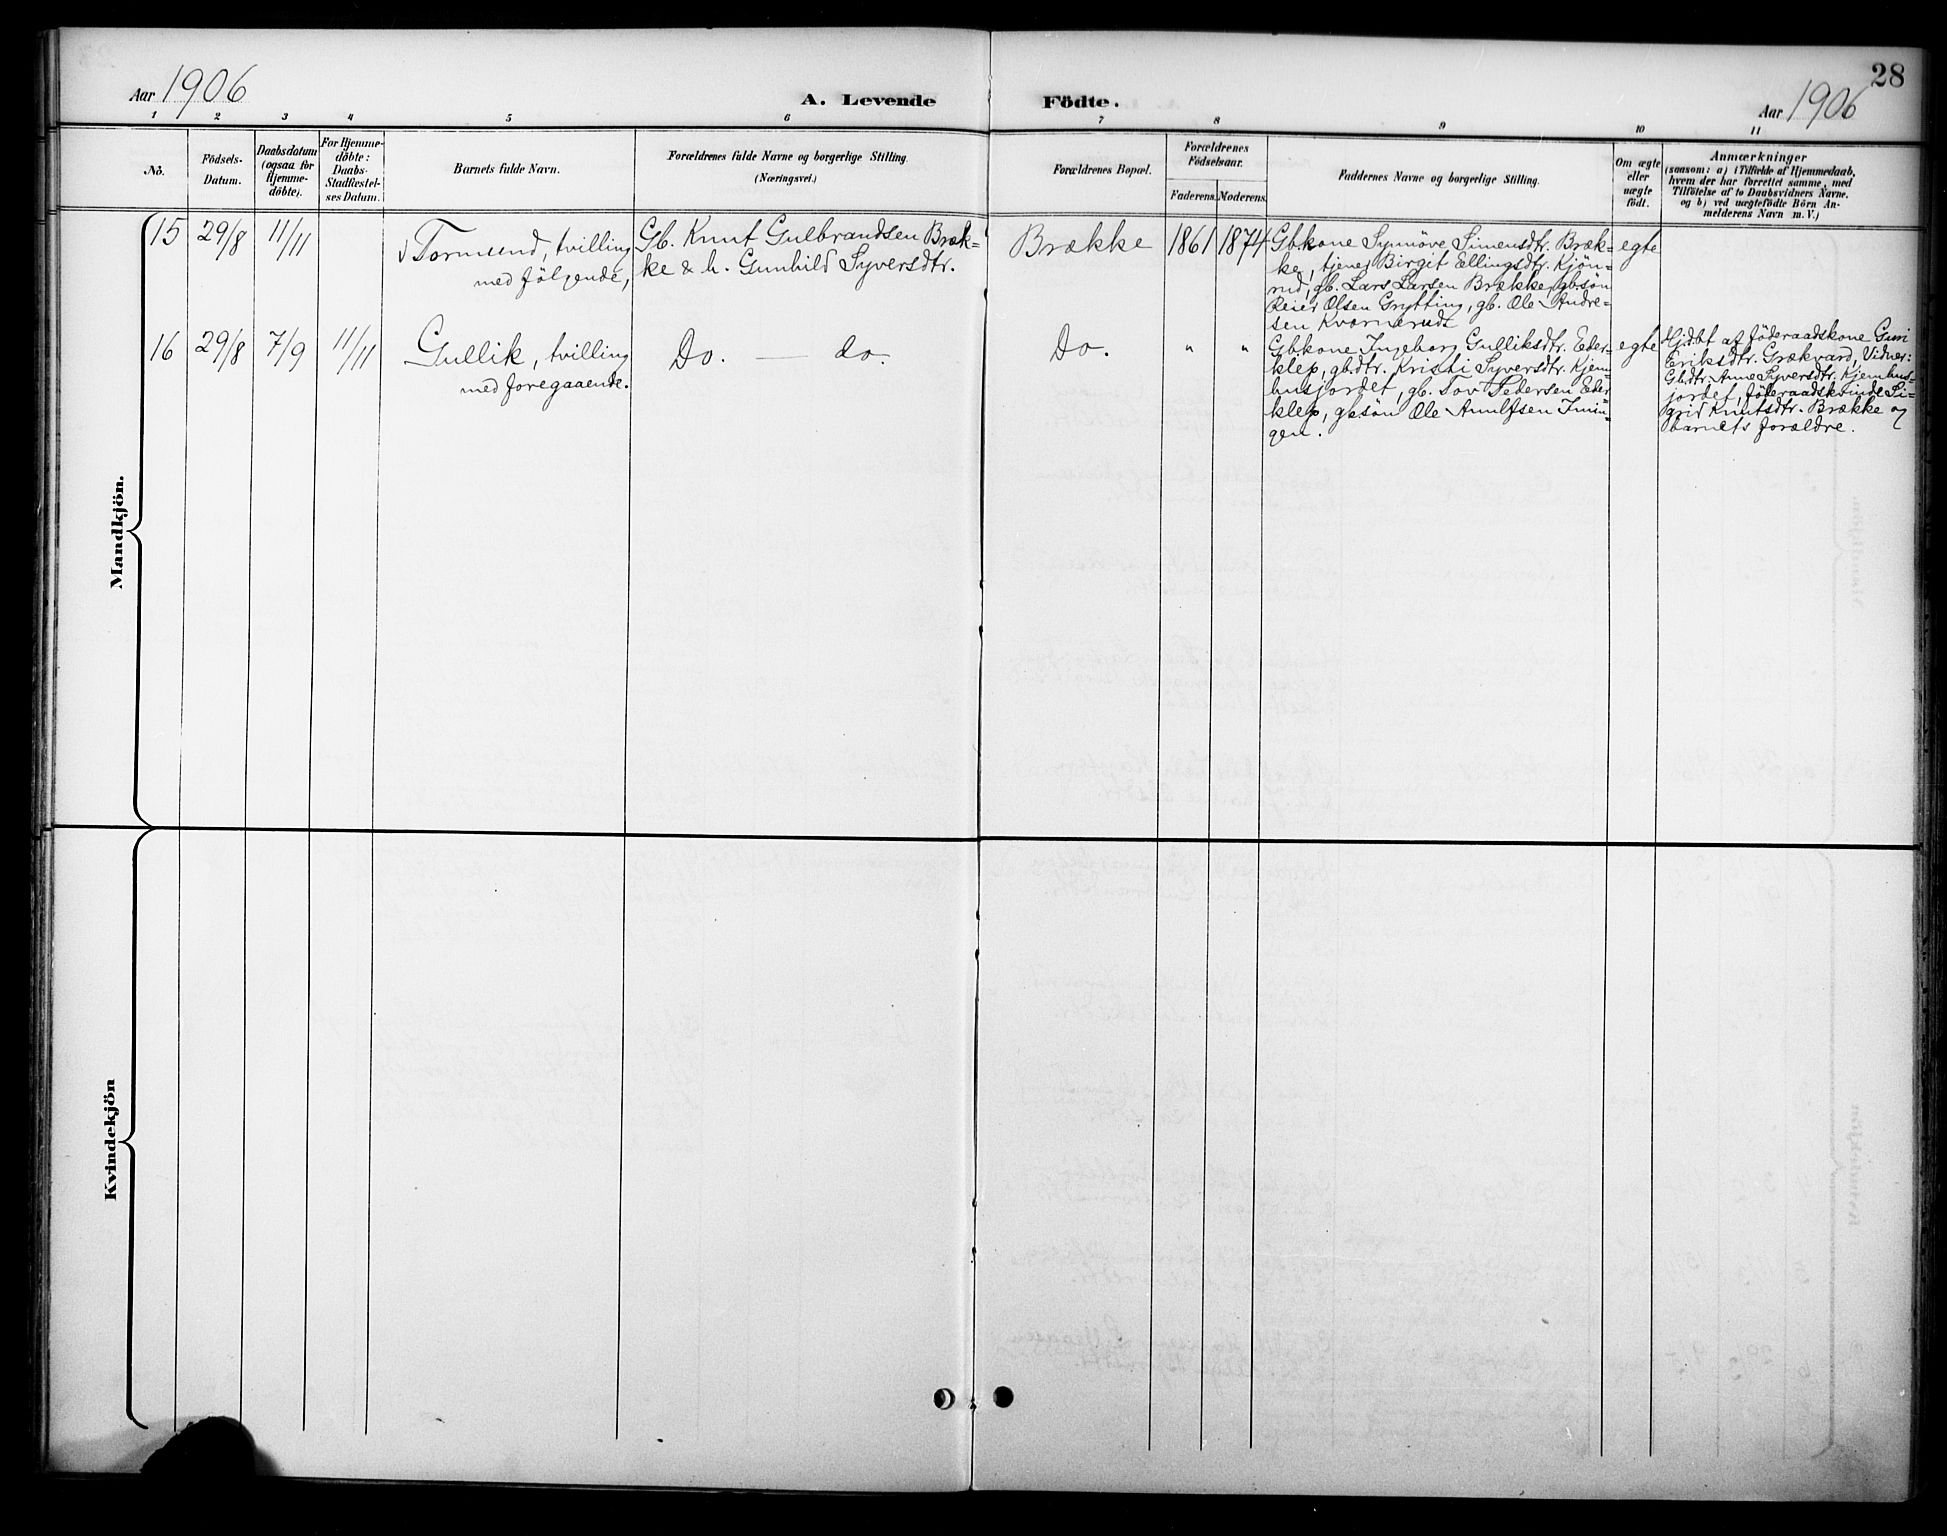 28
Aar 1906
A. Levende Födte.
Aar 1906
1 2 3 4 5 6 7 8 9 10 11
No.
Födsels-
Datum.
Daabsdatum
(ogsaa for
Hjemme-
döbte).
For Hjemme-
döbte:
Daabs-
Stadfæstel-
ses Datum.
Barnets fulde Navn.
Forældrenes fulde Navne og borgerlige Stilling.
(Næringsvei.)
Forældrenes Bopæl.
Forældrenes
Födselsaar.
Faderens. Moderens.
Faddernes Navne og borgerlige Stilling.
Om ægte
eller
uægte
födt.
Anmærkninger
(saasom: a) i Tilfælde af Hjemmedaab,
hvem der har forrettet samme, med
Tilföielse af to Daabsvidners Navne.
og b) ved uægtefödte Börn An-
melderens Navn m. V.)
Mandkjön.
15 29/8 11/11
Tormund, tvilling
med følgende,
Gb. Knut Gulbrandsen Bræk-
ke & h. Gunhild Syversdtr.
Brække
1861 1874
Gbkone Synnøve Simensdtr. Bræk-
ke, tjener Birgit Ellingsdtr. Kjøn-
rud, gb. Lars Larsen Brække, gbsøn
Reier Olsen Grytting, gb. Ole Andre-
sen Kværnerud
egte
16 29/8 7/9 11/11
Gullik, tvilling
med foregaaende.
Do. — do.
Do.
" "
Gbkone Ingeborg Gulliksdtr. Eder-
klep, gbdtr. Kristi Syversdtr. Kjem-
husjordet, gb. Tov Pedersen Eder-
klep, gbsøn Ole Arnulfsen Imin-
gen.
egte
Hjdbt af føderaadskone Guri
Eriksdtr. Grækvard, Vidner:
Gbdtr. Anne Syversdtr. Kjemhus-
jordet, føderaadskvinde Si-
grid Knutsdtr. Brække og
barnets forældre.
Kvindekjön